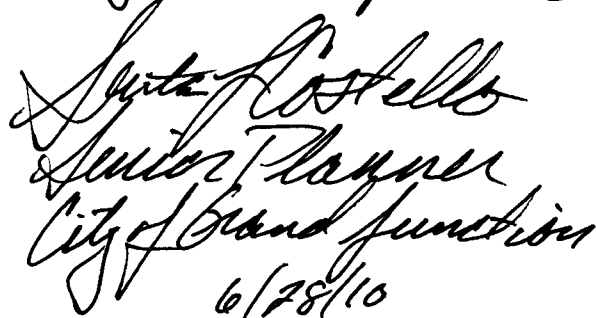 Senta Costello
Senior Planner
City of Grand Junction
6/28/10